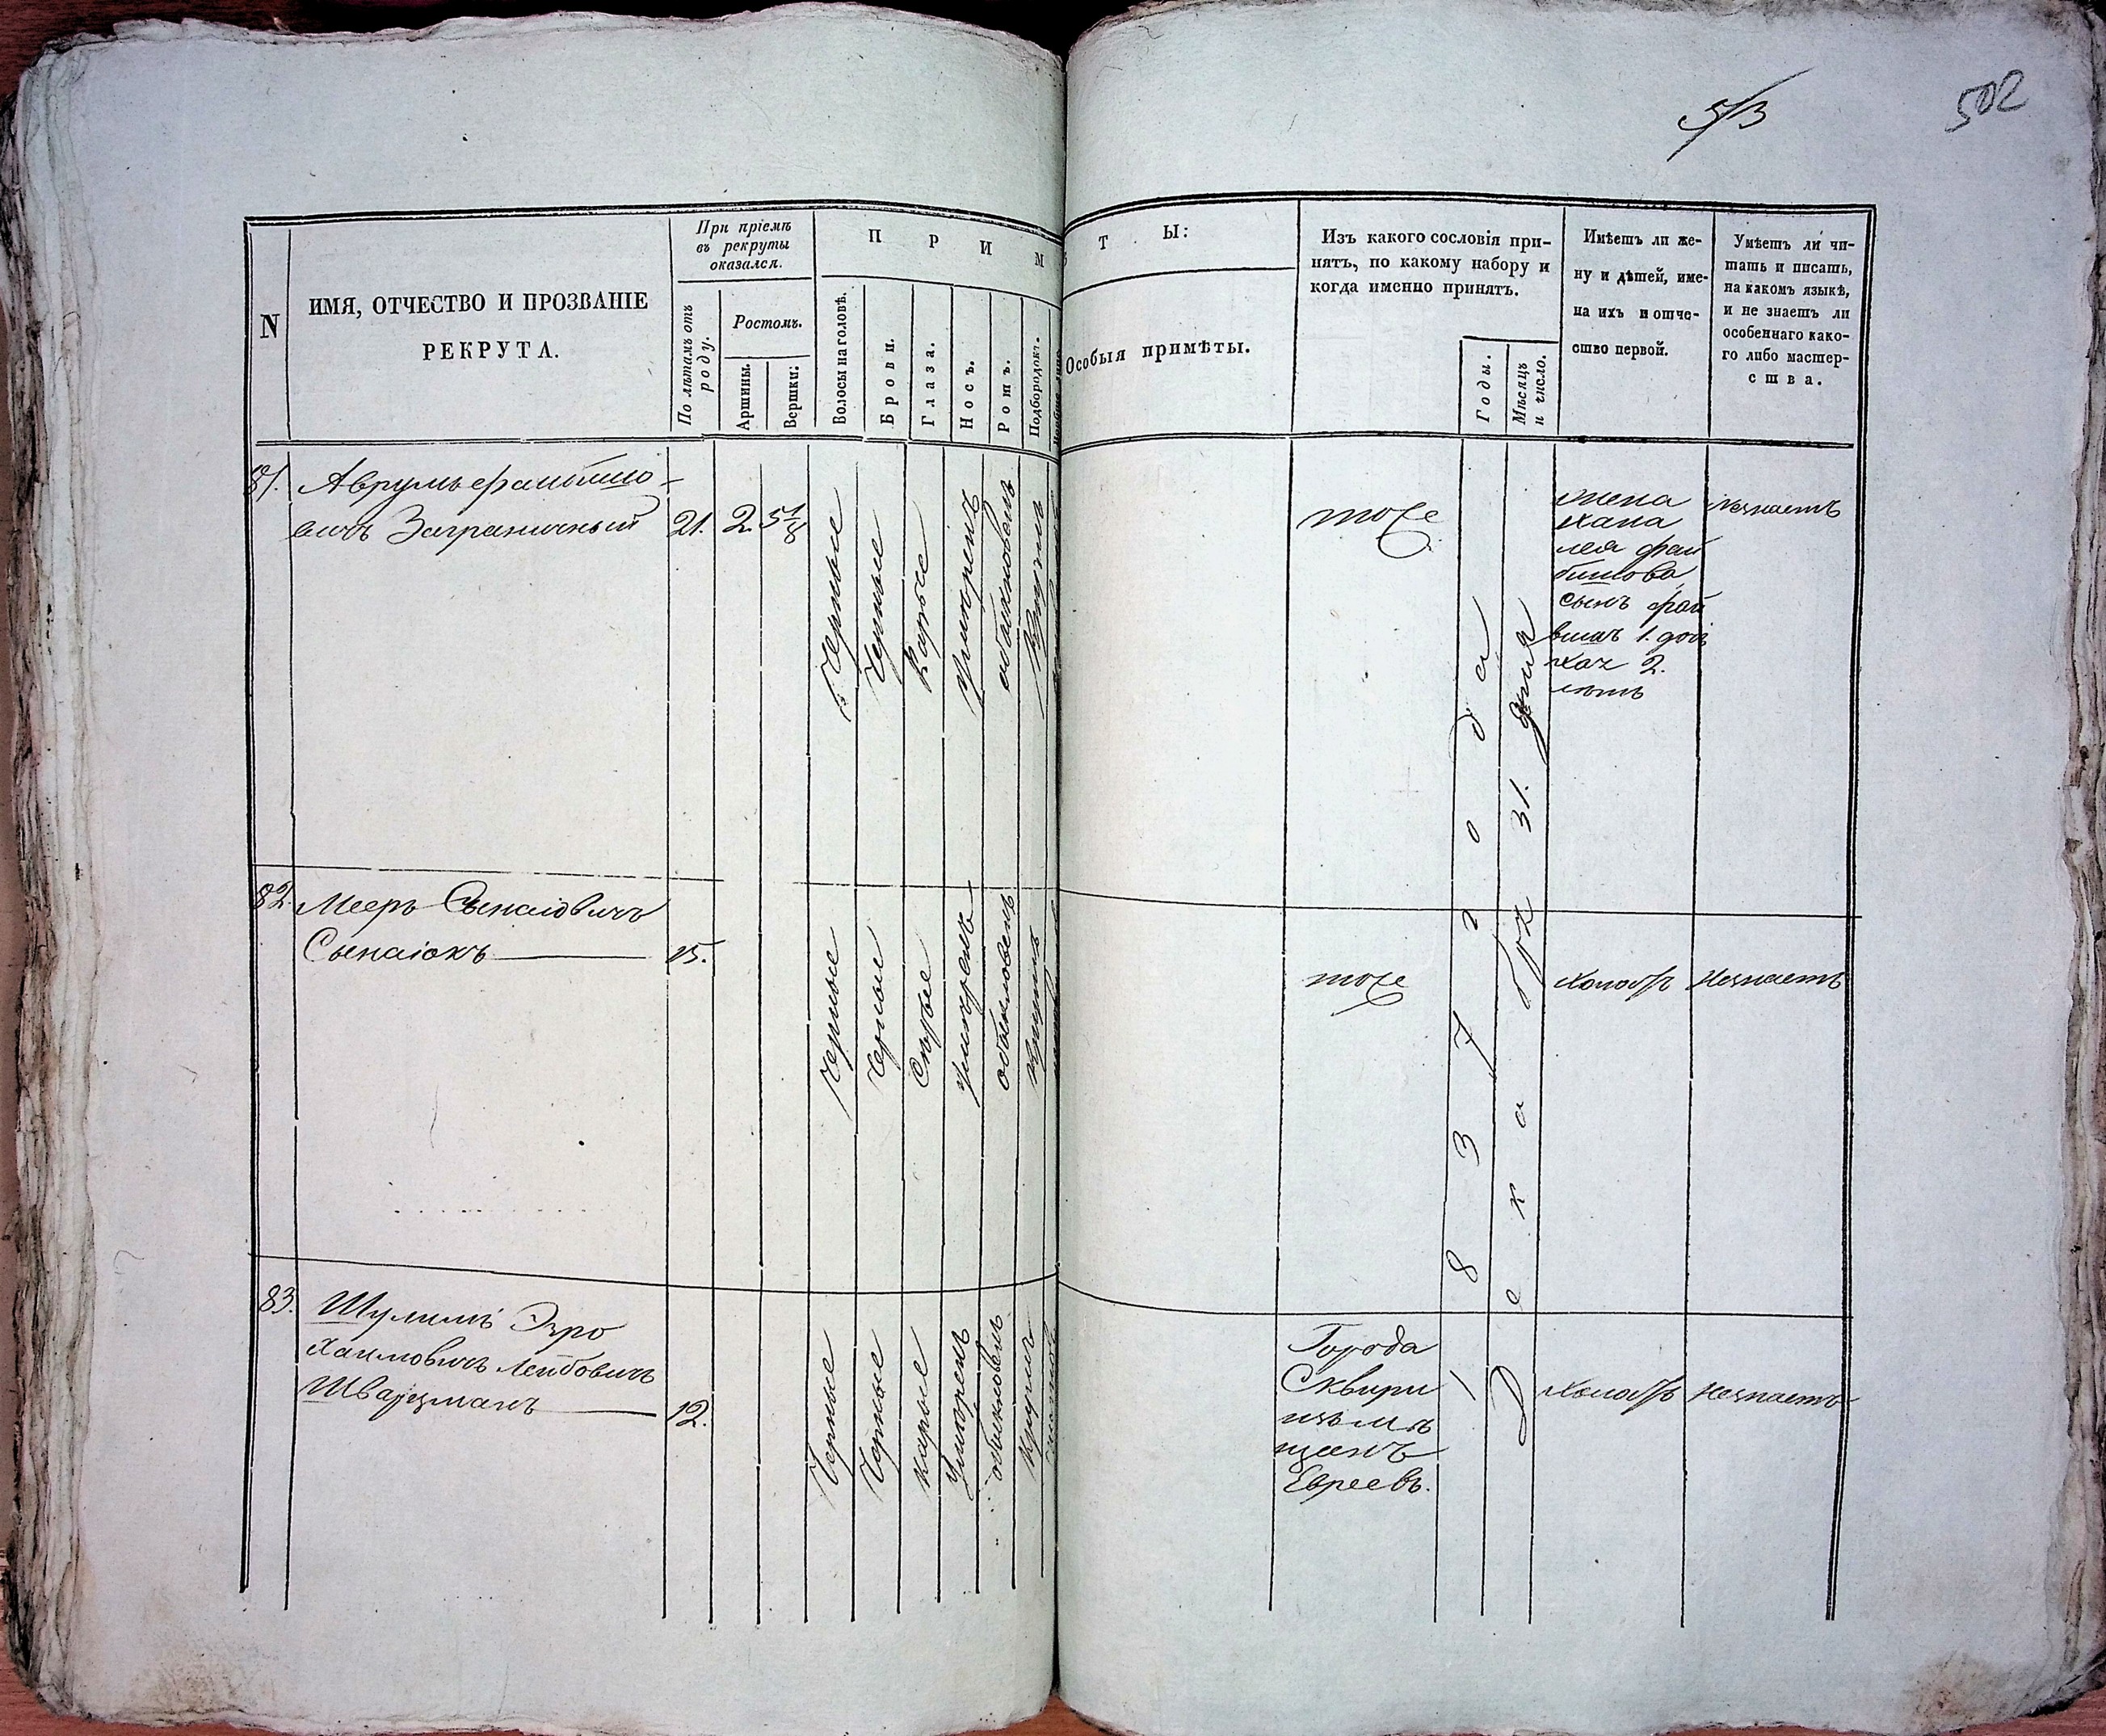 513
502
N
ИМЯ, ОТЧЕСТВО И ПРОЗВАНІЕ
РЕКРУТА.
При пріемѣ
въ рекруты
оказался.
По лѣтамъ отъ
роду.
Ростомъ.
Аршины.
Вершки:
П Р И М
Волосы на головѣ.
Брови.
Глаза.
Носъ.
Ротъ.
Подбородокъ.
Т Ы:
Особыя примѣты.
Изъ какого сословія при-
нятъ, по какому набору и
когда именно принятъ.
Годы.
Мѣсяцъ
и число.
Имѣетъ ли же-
ну и дѣтей, име-
на ихъ и отче-
ство первой.
Умѣетъ ли чи-
тать и писать,
на какомъ языкѣ,
и не знаетъ ли
особеннаго како-
го либо мастер-
ства.
81.
Аврумъ
вичъ Заграничный
21.
2.
Черные
Черные
Карые
Умѣренъ
обыкновенъ
Кругл
тоже
жена
Хана
лея фай
бишова
сынъ фай
вишъ 1. года
2.
лѣтъ
Незнаетъ
1837 года
Декабря 31. дня
82.
Мееръ Сынаіовичъ
Сынаіокъ
15.
Черные
Черные
Сѣрые
Умѣренъ
обыкновенъ
Круглъ
тоже
Холостъ
Незнаетъ
83.
Шулимъ Эзро
Хаимовичъ Лейбовичъ
Шварцманъ
12.
Черные
Черные
карые
Умѣренъ
обыкновенъ
Круглъ
Города
Сквиры
изъ мѣ
щанъ
Евреевъ.
Холостъ
Незнаетъ